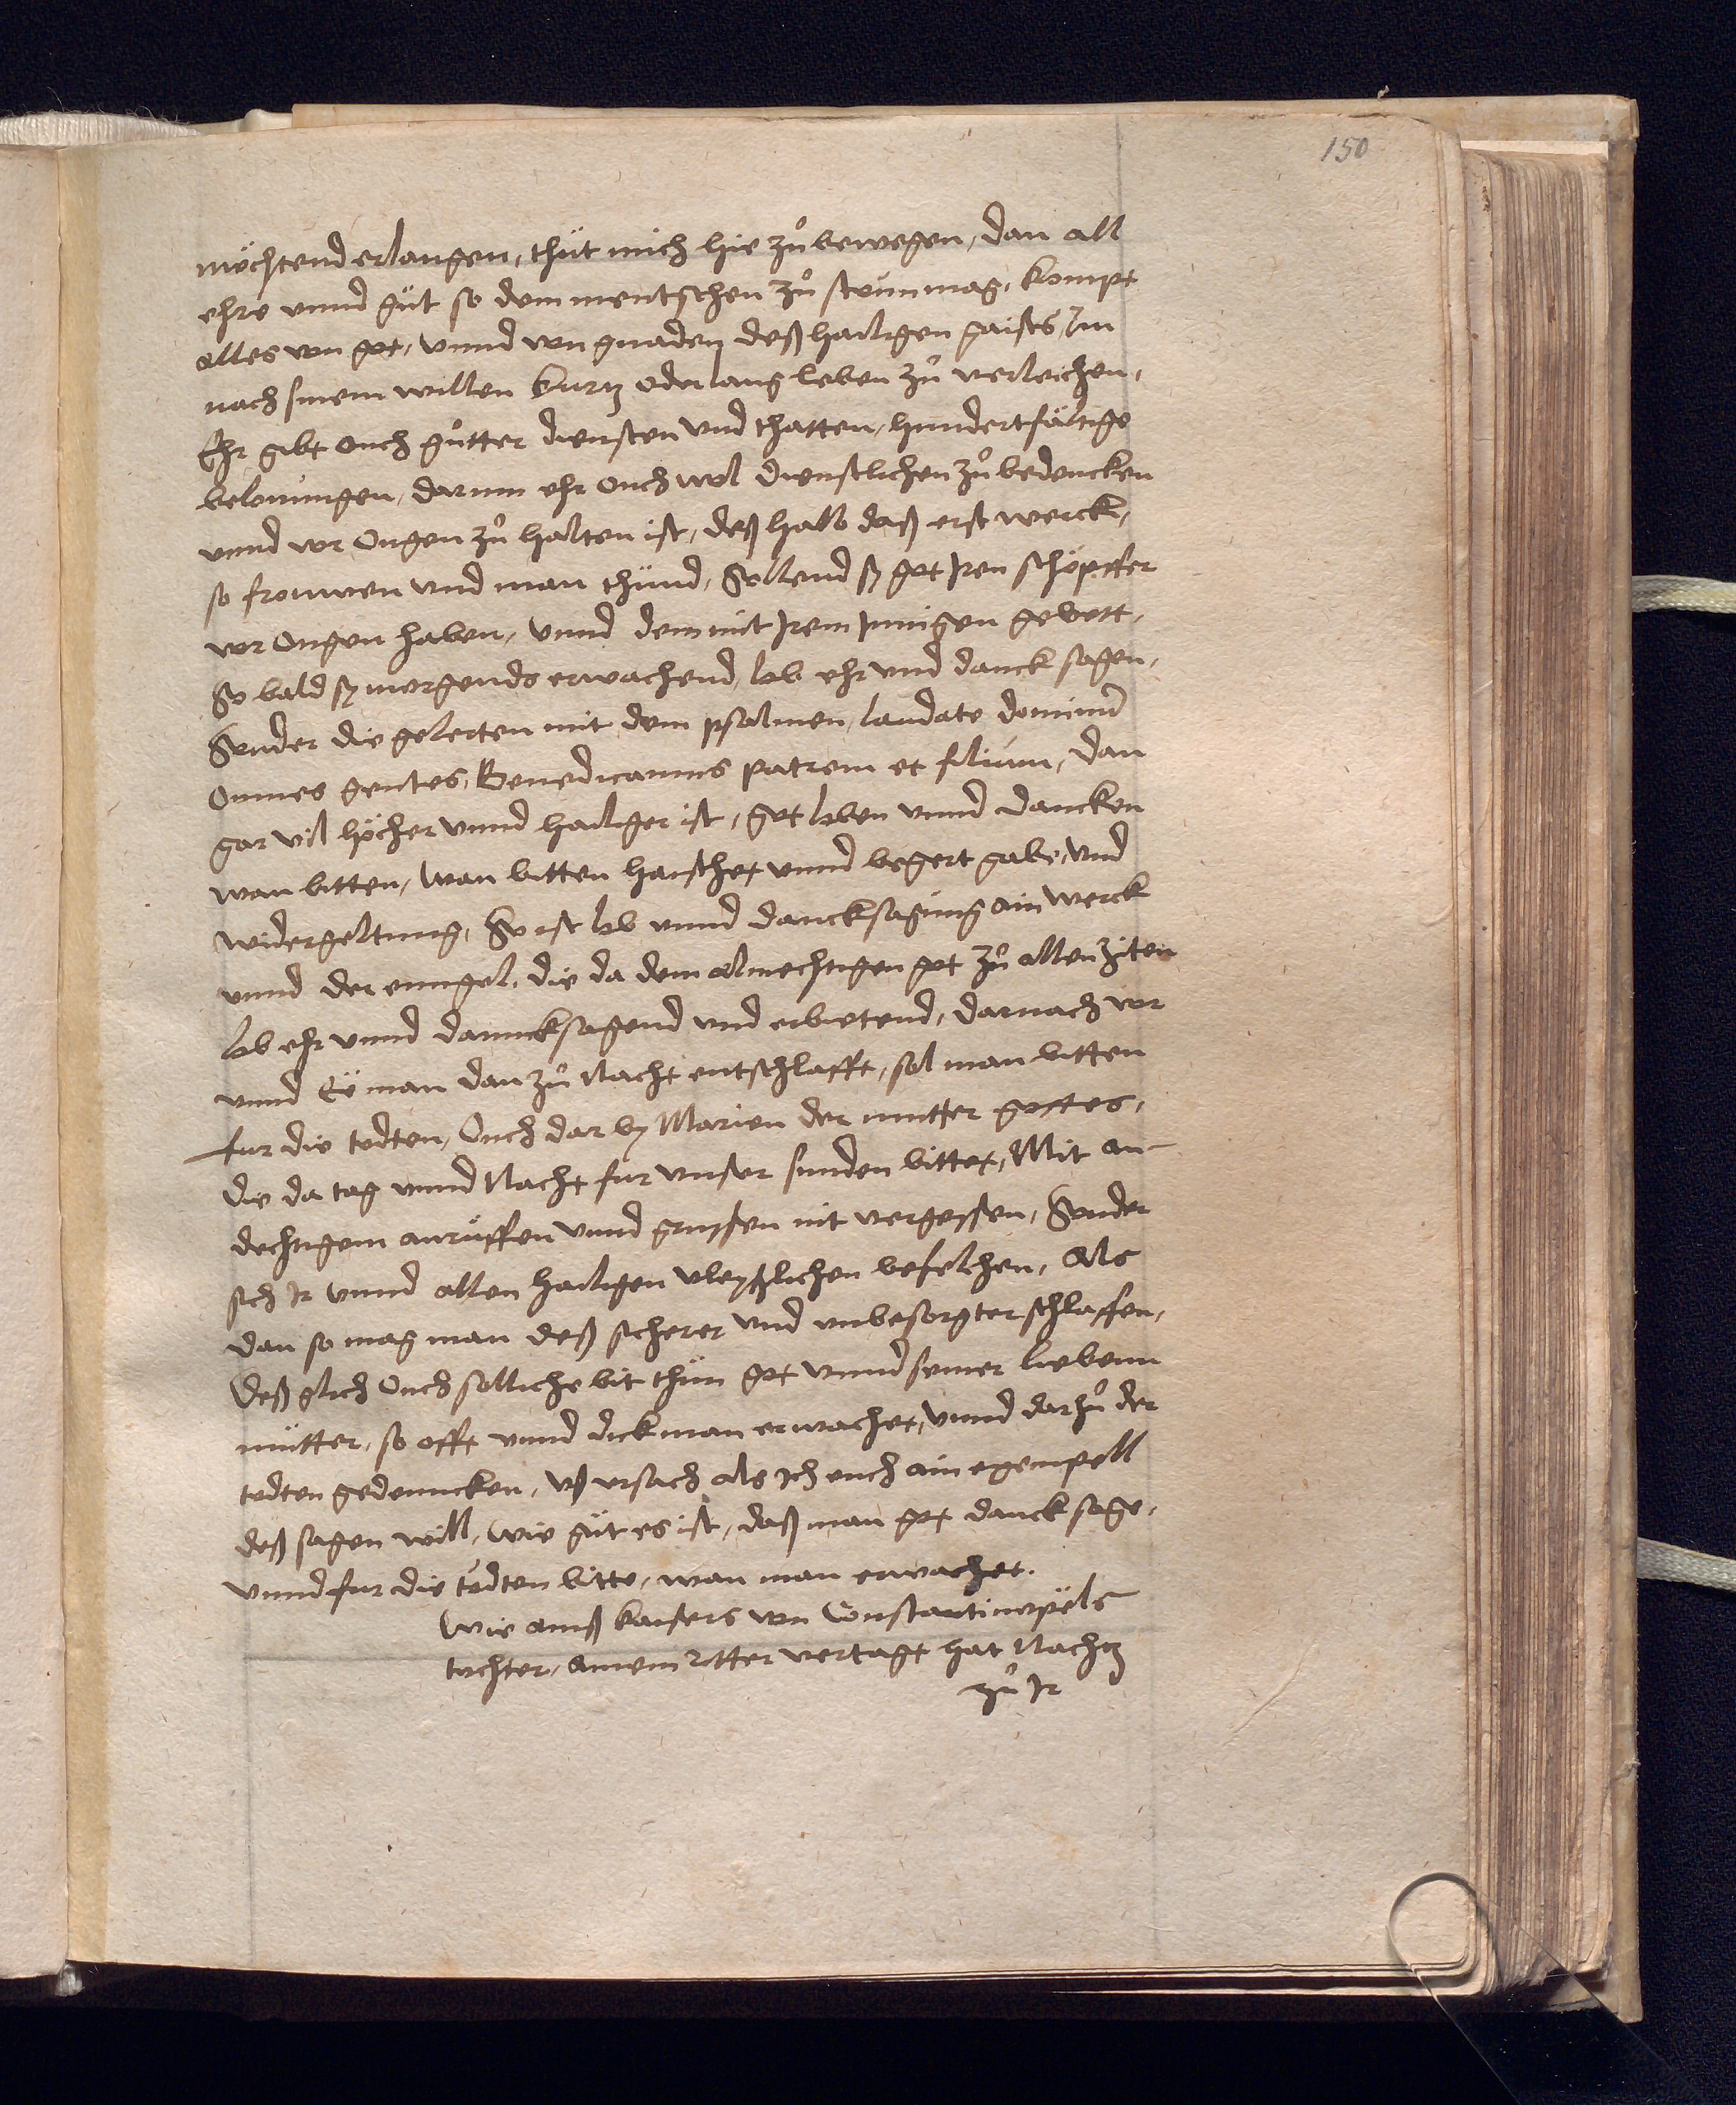 150
möchtend erlangen, thut mich hie zů bewegen, dan all
ehre vnnd gůt so dem mentschen zů ston mag, kompt
alles von got, vnnd von gnaden deß hailigen gaists, Im
nach sinem willen kurtz oder lang leben zů verleichen,
Ehr gibt ouch gůtter diensten vnd thatten, hundertfältige
belonungen, darum ehr ouch wol dienstlichen zů bedencken
vnnd vor Ougen zů halten ist, deßhalb daß erst werck,
so frouwen vnd man thund, Sollend sy got Iren schöpffer
vor Ougen haben, vnnd dem mit Irem Innigen gebett,
So bald sy morgends erwachend, lob ehr vnd danck sagen,
Sunder die gelerten mit dem psalmen, laudate dominum
Omnes gentes, Benedicamus patrem et filium, dan
gar vil höcher vnnd hailiger ist, got loben vnnd dancken
wan bitten, wan bitten haischet vnnd begert gabe, vnd
widergeltung, So ist lob vnnd dancksagung ain werck
vnnd der enngel, die da dem almechtigen got zů allen ziten
lob ehr vnnd danncksagend vnd erbietend, darnach vor
vnnd Ee man dan zů Nacht entschlafft, sol man bitten
fur die todten, Ouch dar by Marien der mutter gottes,
die da tag vnnd Nacht fur vnser sunden bittet, Mit an-
dechtigem anruffen vnnd gruessen nit vergessen, Sonder
sich Ir vnnd allen hailigen vleyßlichen befelchen, Als
dan so mag man deß sicherer vnd vnbesorgter schlaffen,
Deß glich Ouch solliche bit thun got vnnd seiner liebenn
mutter, so offt vnnd dick man erwachet, vnnd darzů der
todten gedenncken, vß vrsach als Ich euch ain exempell
deß sagen will, wie gut es ist, daß man got danck sage,
vnnd fur die todten bitte, wan man erwachet.
Wie aines kaisers von Constantinopels
tochter, ainem ritter vertagt hat Nachtz
zů Ir